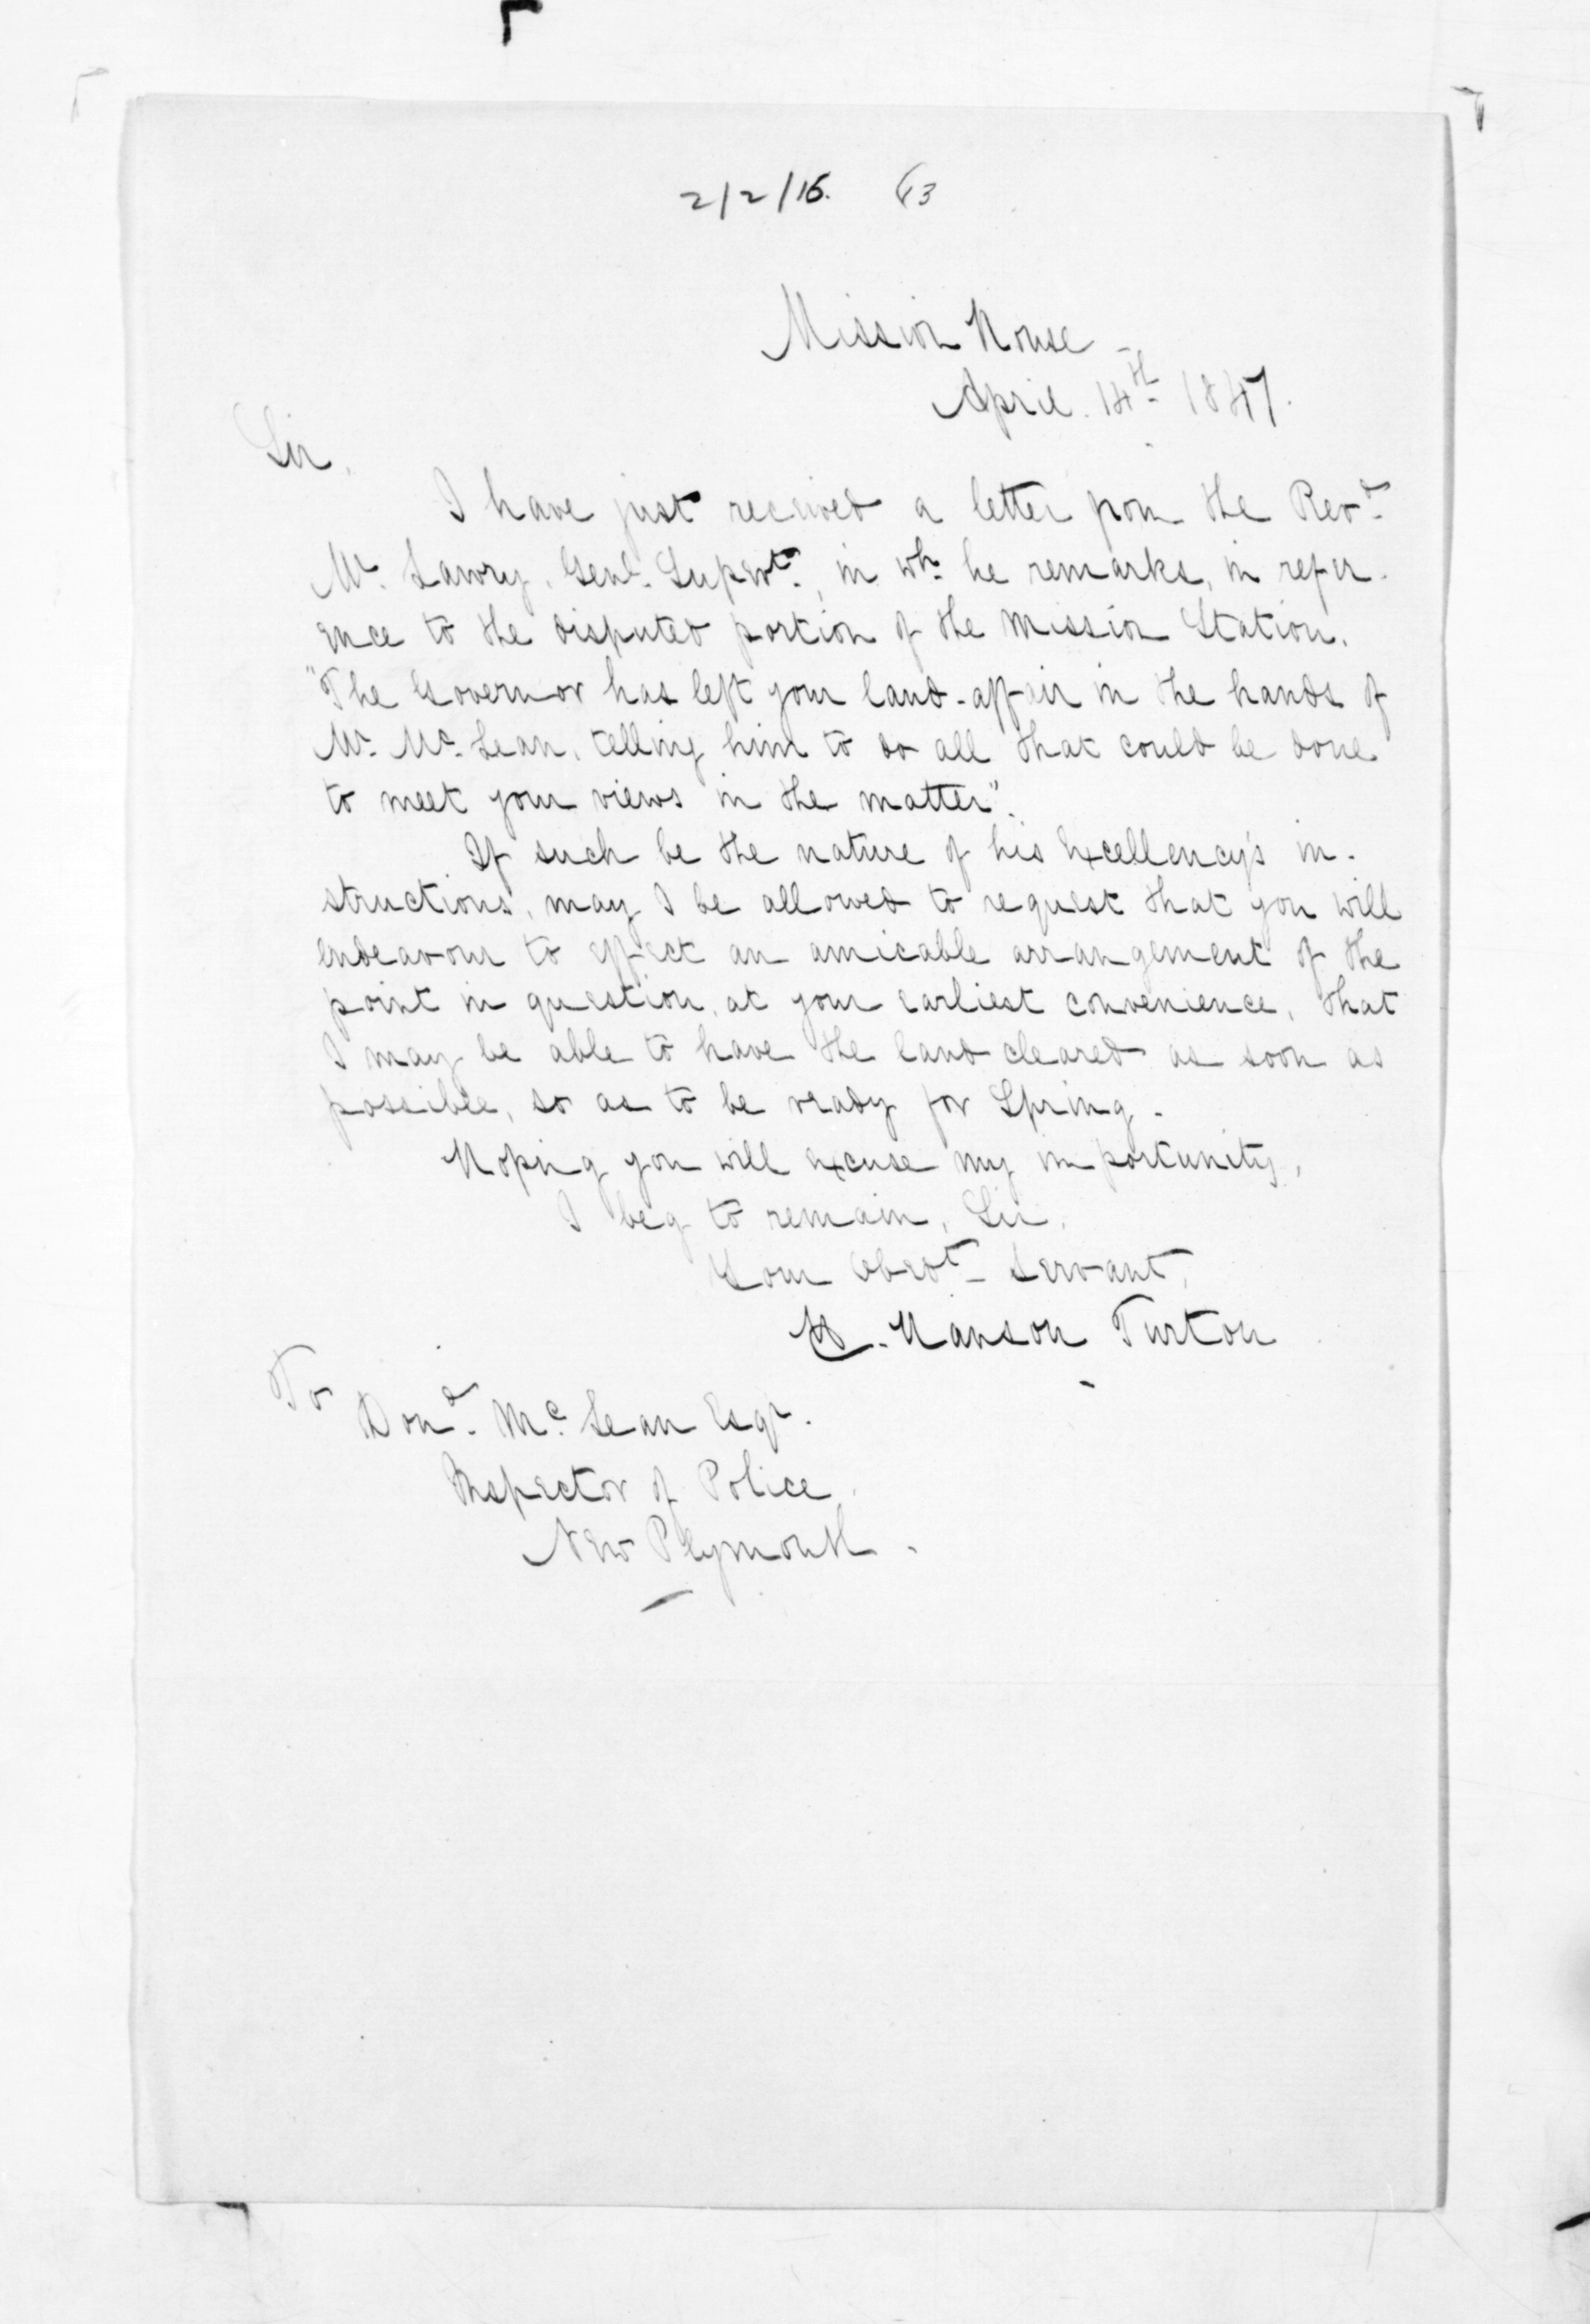 2/2/15. 63
Mission House
April. 14th 1847.
Sir,
I have just received a letter from the Revd.
Mr. Lawry, Genl. Supertt., in wh. he remarks, in refer-
ence to the disputed portion of the Mission Station,
"The Governor has left your land-affair in the hands of
Mr. Mc.Lean, telling him to do all that could be done
to meet your views in the matter".
If such be the nature of his Excellency's in-
structions, may I be allowed to request that you will
endeavour to effect an amicable arrangement of the
point in question, at your earliest convenience, that
I may be able to have the land cleared as soon as
possible, so as to be ready for Spring.
Hoping you will excuse my importunity,
I beg to remain, Sir,
Your Obedt. Servant,
H. Hanson Turton
To
Dond. Mc.Lean Esqr.
Inspector of Police
New Plymouth.